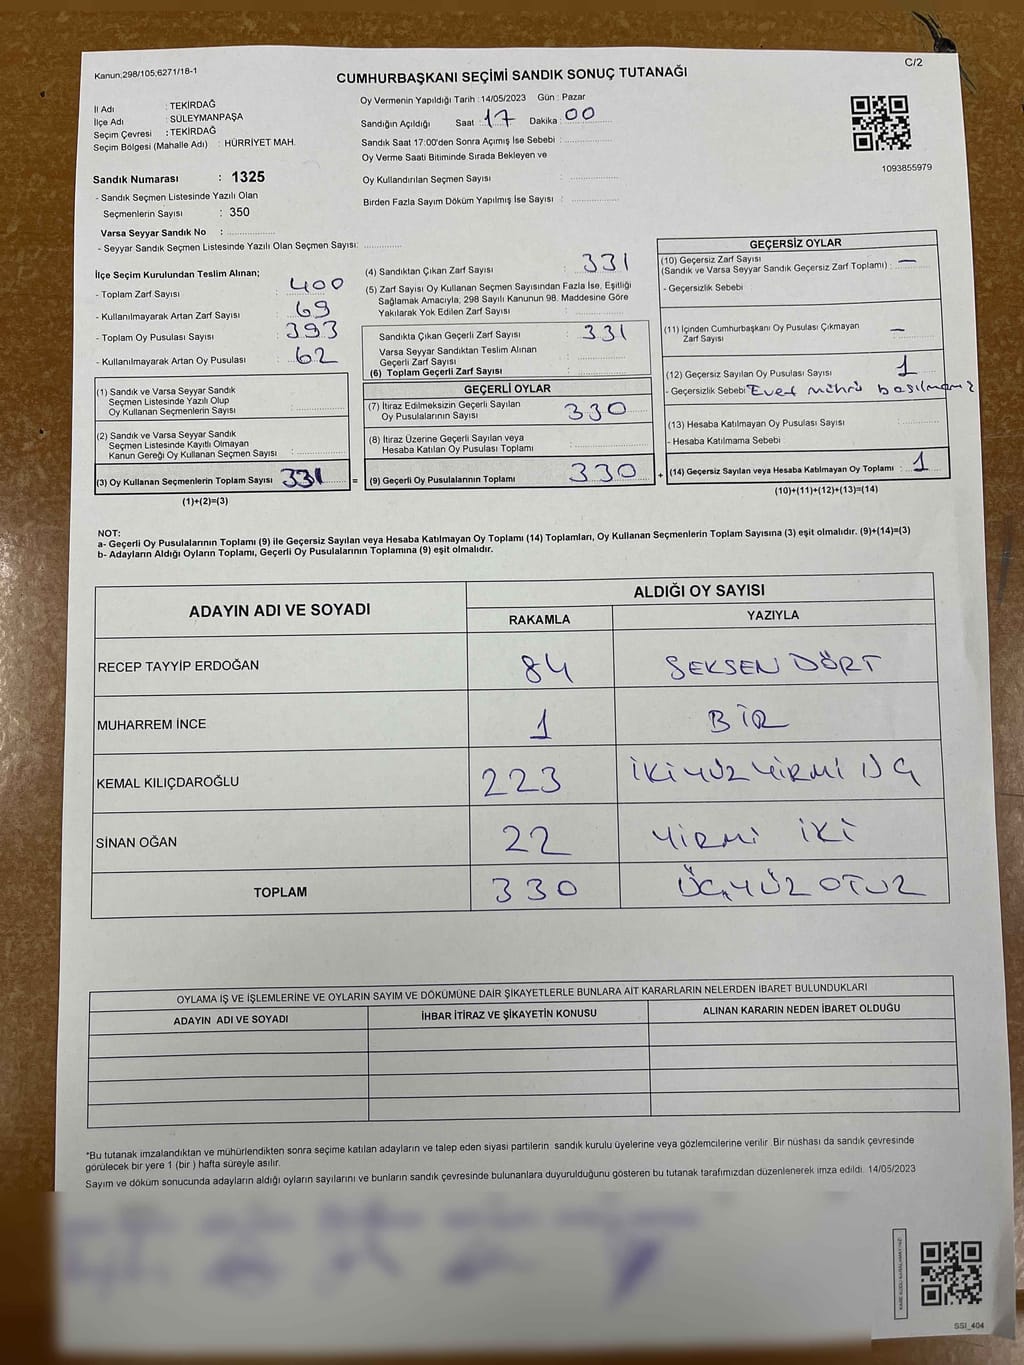 Kanun,298/105,6271/18-1
C/2
CUMHURBAŞKANI SEÇİMİ SANDIK SONUÇ TUTANAĞI
İl Adı : TEKİRDAĞ
İlçe Adı : SÜLEYMANPAŞA
Seçim Çevresi : TEKİRDAĞ
Seçim Bölgesi (Mahalle Adı) : HÜRRİYET MAH.
Sandık Numarası : 1325
- Sandık Seçmen Listesinde Yazılı Olan
Seçmenlerin Sayısı : 350
Varsa Seyyar Sandık No :
- Seyyar Sandık Seçmen Listesinde Yazılı Olan Seçmen Sayısı:
Oy Vermenin Yapıldığı Tarih :14/05/2023 Gün : Pazar
Sandığın Açıldığı Saat : 17 Dakika : 00
Sandık Saat 17:00'den Sonra Açımış İse Sebebi :
Oy Verme Saati Bitiminde Sırada Bekleyen ve
Oy Kullandırılan Seçmen Sayısı :
Birden Fazla Sayım Döküm Yapılmış İse Sayısı :
1093855979
İlçe Seçim Kurulundan Teslim Alınan;
- Toplam Zarf Sayısı : 400
- Kullanılmayarak Artan Zarf Sayısı : 69
- Toplam Oy Pusulası Sayısı : 393
- Kullanılmayarak Artan Oy Pusulası : 62
(1) Sandık ve Varsa Seyyar Sandık
Seçmen Listesinde Yazılı Olup
Oy Kullanan Seçmenlerin Sayısı :
(2) Sandık ve Varsa Seyyar Sandık
Seçmen Listesinde Kayıtlı Olmayan
Kanun Gereği Oy Kullanan Seçmen Sayısı :
(3) Oy Kullanan Seçmenlerin Toplam Sayısı : 331 =
(1)+(2)=(3)
(4) Sandıktan Çıkan Zarf Sayısı : 331
(5) Zarf Sayısı Oy Kullanan Seçmen Sayısından Fazla İse, Eşitliği
Sağlamak Amacıyla, 298 Sayılı Kanunun 98. Maddesine Göre
Yakılarak Yok Edilen Zarf Sayısı :
Sandıkta Çıkan Geçerli Zarf Sayısı : 331
Varsa Seyyar Sandıktan Teslim Alınan
Geçerli Zarf Sayısı :
(6) Toplam Geçerli Zarf Sayısı :
GEÇERLİ OYLAR
(7) İtiraz Edilmeksizin Geçerli Sayılan
Oy Pusulalarının Sayısı : 330
(8) İtiraz Üzerine Geçerli Sayılan veya
Hesaba Katılan Oy Pusulası Toplamı :
(9) Geçerli Oy Pusulalarının Toplamı : 330 +
GEÇERSİZ OYLAR
(10) Geçersiz Zarf Sayısı
(Sandık ve Varsa Seyyar Sandık Geçersiz Zarf Toplamı) : —
- Geçersizlik Sebebi
(11) İçinden Cumhurbaşkanı Oy Pusulası Çıkmayan
Zarf Sayısı : —
(12) Geçersiz Sayılan Oy Pusulası Sayısı : 1
- Geçersizlik Sebebi Evet mührü basılmamış
(13) Hesaba Katılmayan Oy Pusulası Sayısı :
- Hesaba Katılmama Sebebi
(14) Geçersiz Sayılan veya Hesaba Katılmayan Oy Toplamı : 1
(10)+(11)+(12)+(13)=(14)
NOT:
a- Geçerli Oy Pusulalarının Toplamı (9) ile Geçersiz Sayılan veya Hesaba Katılmayan Oy Toplamı (14) Toplamları, Oy Kullanan Seçmenlerin Toplam Sayısına (3) eşit olmalıdır. (9)+(14)=(3)
b- Adayların Aldığı Oyların Toplamı, Geçerli Oy Pusulalarının Toplamına (9) eşit olmalıdır.
ADAYIN ADI VE SOYADI
ALDIĞI OY SAYISI
RAKAMLA YAZIYLA
RECEP TAYYİP ERDOĞAN 84 SEKSEN DÖRT
MUHARREM İNCE 1 BİR
KEMAL KILIÇDAROĞLU 223 İKİYÜZYİRMİ ÜÇ
SİNAN OĞAN 22 YİRMİ İKİ
TOPLAM 330 ÜÇYÜZ OTUZ
OYLAMA İŞ VE İŞLEMLERİNE VE OYLARIN SAYIM VE DÖKÜMÜNE DAİR ŞİKAYETLERLE BUNLARA AİT KARARLARIN NELERDEN İBARET BULUNDUKLARI
ADAYIN ADI VE SOYADI İHBAR İTİRAZ VE ŞİKAYETİN KONUSU ALINAN KARARIN NEDEN İBARET OLDUĞU
*Bu tutanak imzalandıktan ve mühürlendikten sonra seçime katılan adayların ve talep eden siyasi partilerin sandık kurulu üyelerine veya gözlemcilerine verilir. Bir nüshası da sandık çevresinde
görülecek bir yere 1 (bir ) hafta süreyle asılır.
Sayım ve döküm sonucunda adayların aldığı oyların sayılarını ve bunların sandık çevresinde bulunanlara duyurulduğunu gösteren bu tutanak tarafımızdan düzenlenerek imza edildi. 14/05/2023
SSI_404